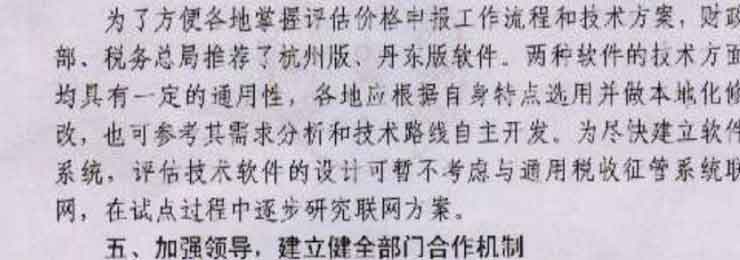 为了方便各地掌握评估价格申报工作流程和技术方案，财政
部、税务总局推荐了杭州版、丹东版软件。两种软件的技术方面
均具有一定的通用性，各地应根据自身特点选用并做本地化修
改，也可参考其需求分析和技术路线自主开发。为尽快建立软件
系统，评估技术软件的设计可暂不考虑与通用税收征管系统联
网，在试点过程中逐步研究联网方案。
五、加强领导，建立健全部门合作机制